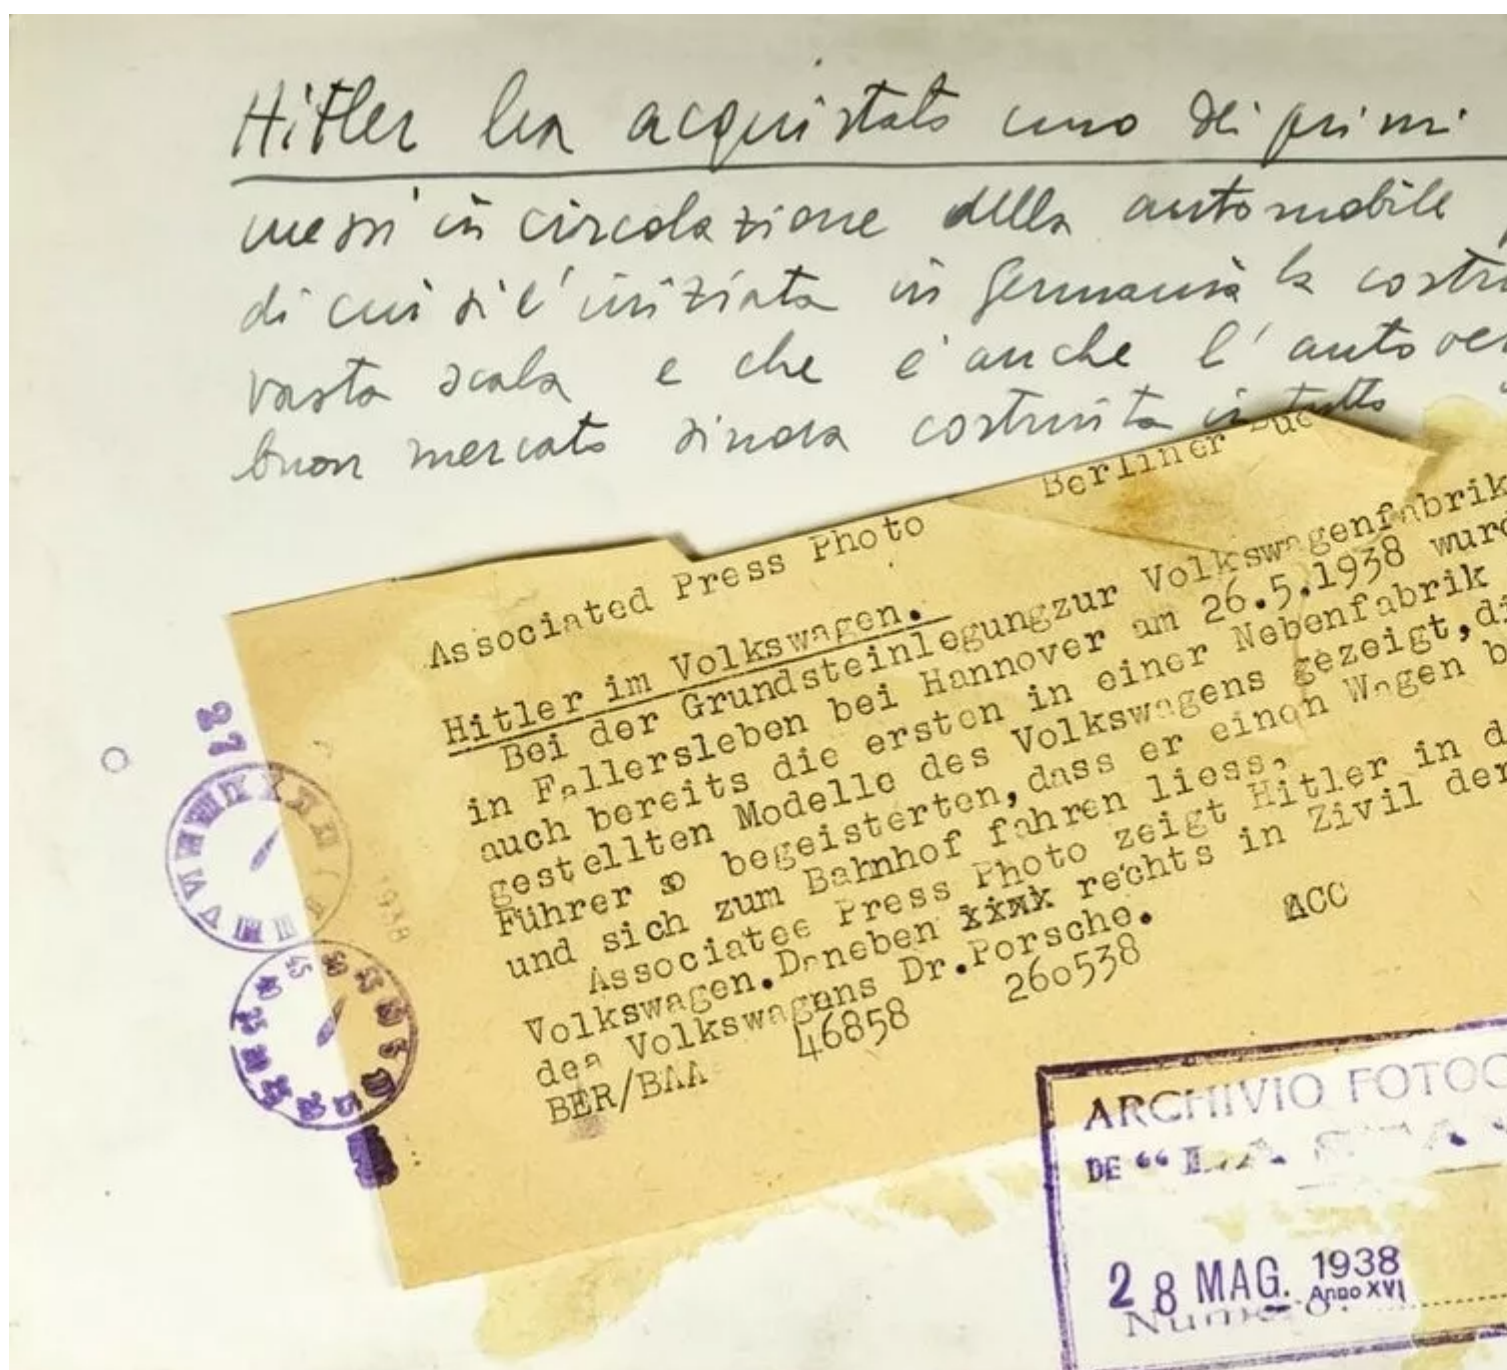 Hitler ha acquistato uno dei primi
messi in circolazione della automobile
di cui si è iniziata in Germania la costru
vasta scala e che è anche l'autove
buon mercato sinora costruita in tutto
Associated Press Photo Berliner
Hitler im Volkswagen.
Bei der Grundsteinlegungzur Volkswagenfabrik
in Fallersleben bei Hannover am 26.5.1938 wurd
auch bereits die ersten in einer Nebenfabrik
gestellten Modelle des Volkswagens gezeigt,di
Führer so begeisterten,dass er einen Wagen b
und sich zum Bahnhof fahren liess.
Associatee Press Photo zeigt Hitler in d
Volkswagen.Daneben xxxx rechts in Zivil der
des Volkswagens Dr.Porsche.
BER/BAA 46858 260538 ACC
27
1938
45 50 55 5
40
35
30
25
20
15
ARCHIVIO FOTOG
DE "LA STA
28 MAG. 1938
Anno XVI
Numero